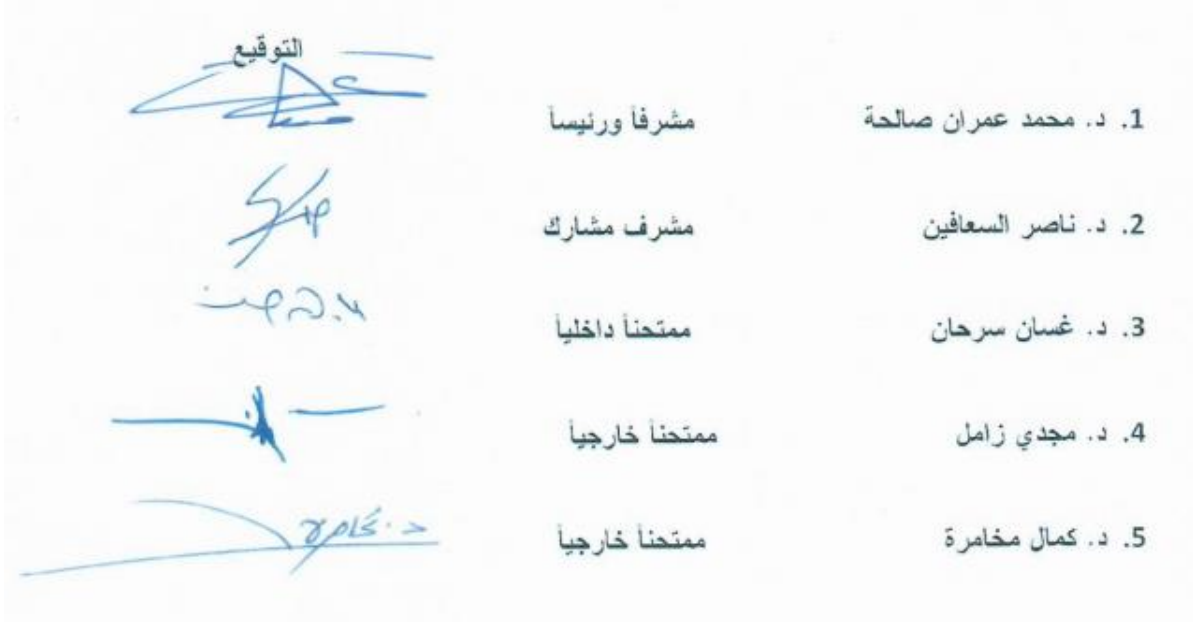 التوقيع
1. د. محمد عمران صالحة مشرفاً ورئيساً
2. د. ناصر السعافين مشرف مشارك
3. د. غسان سرحان ممتحناً داخلياً
4. د. مجدي زامل ممتحناً خارجياً
5. د. كمال مخامرة ممتحناً خارجياً